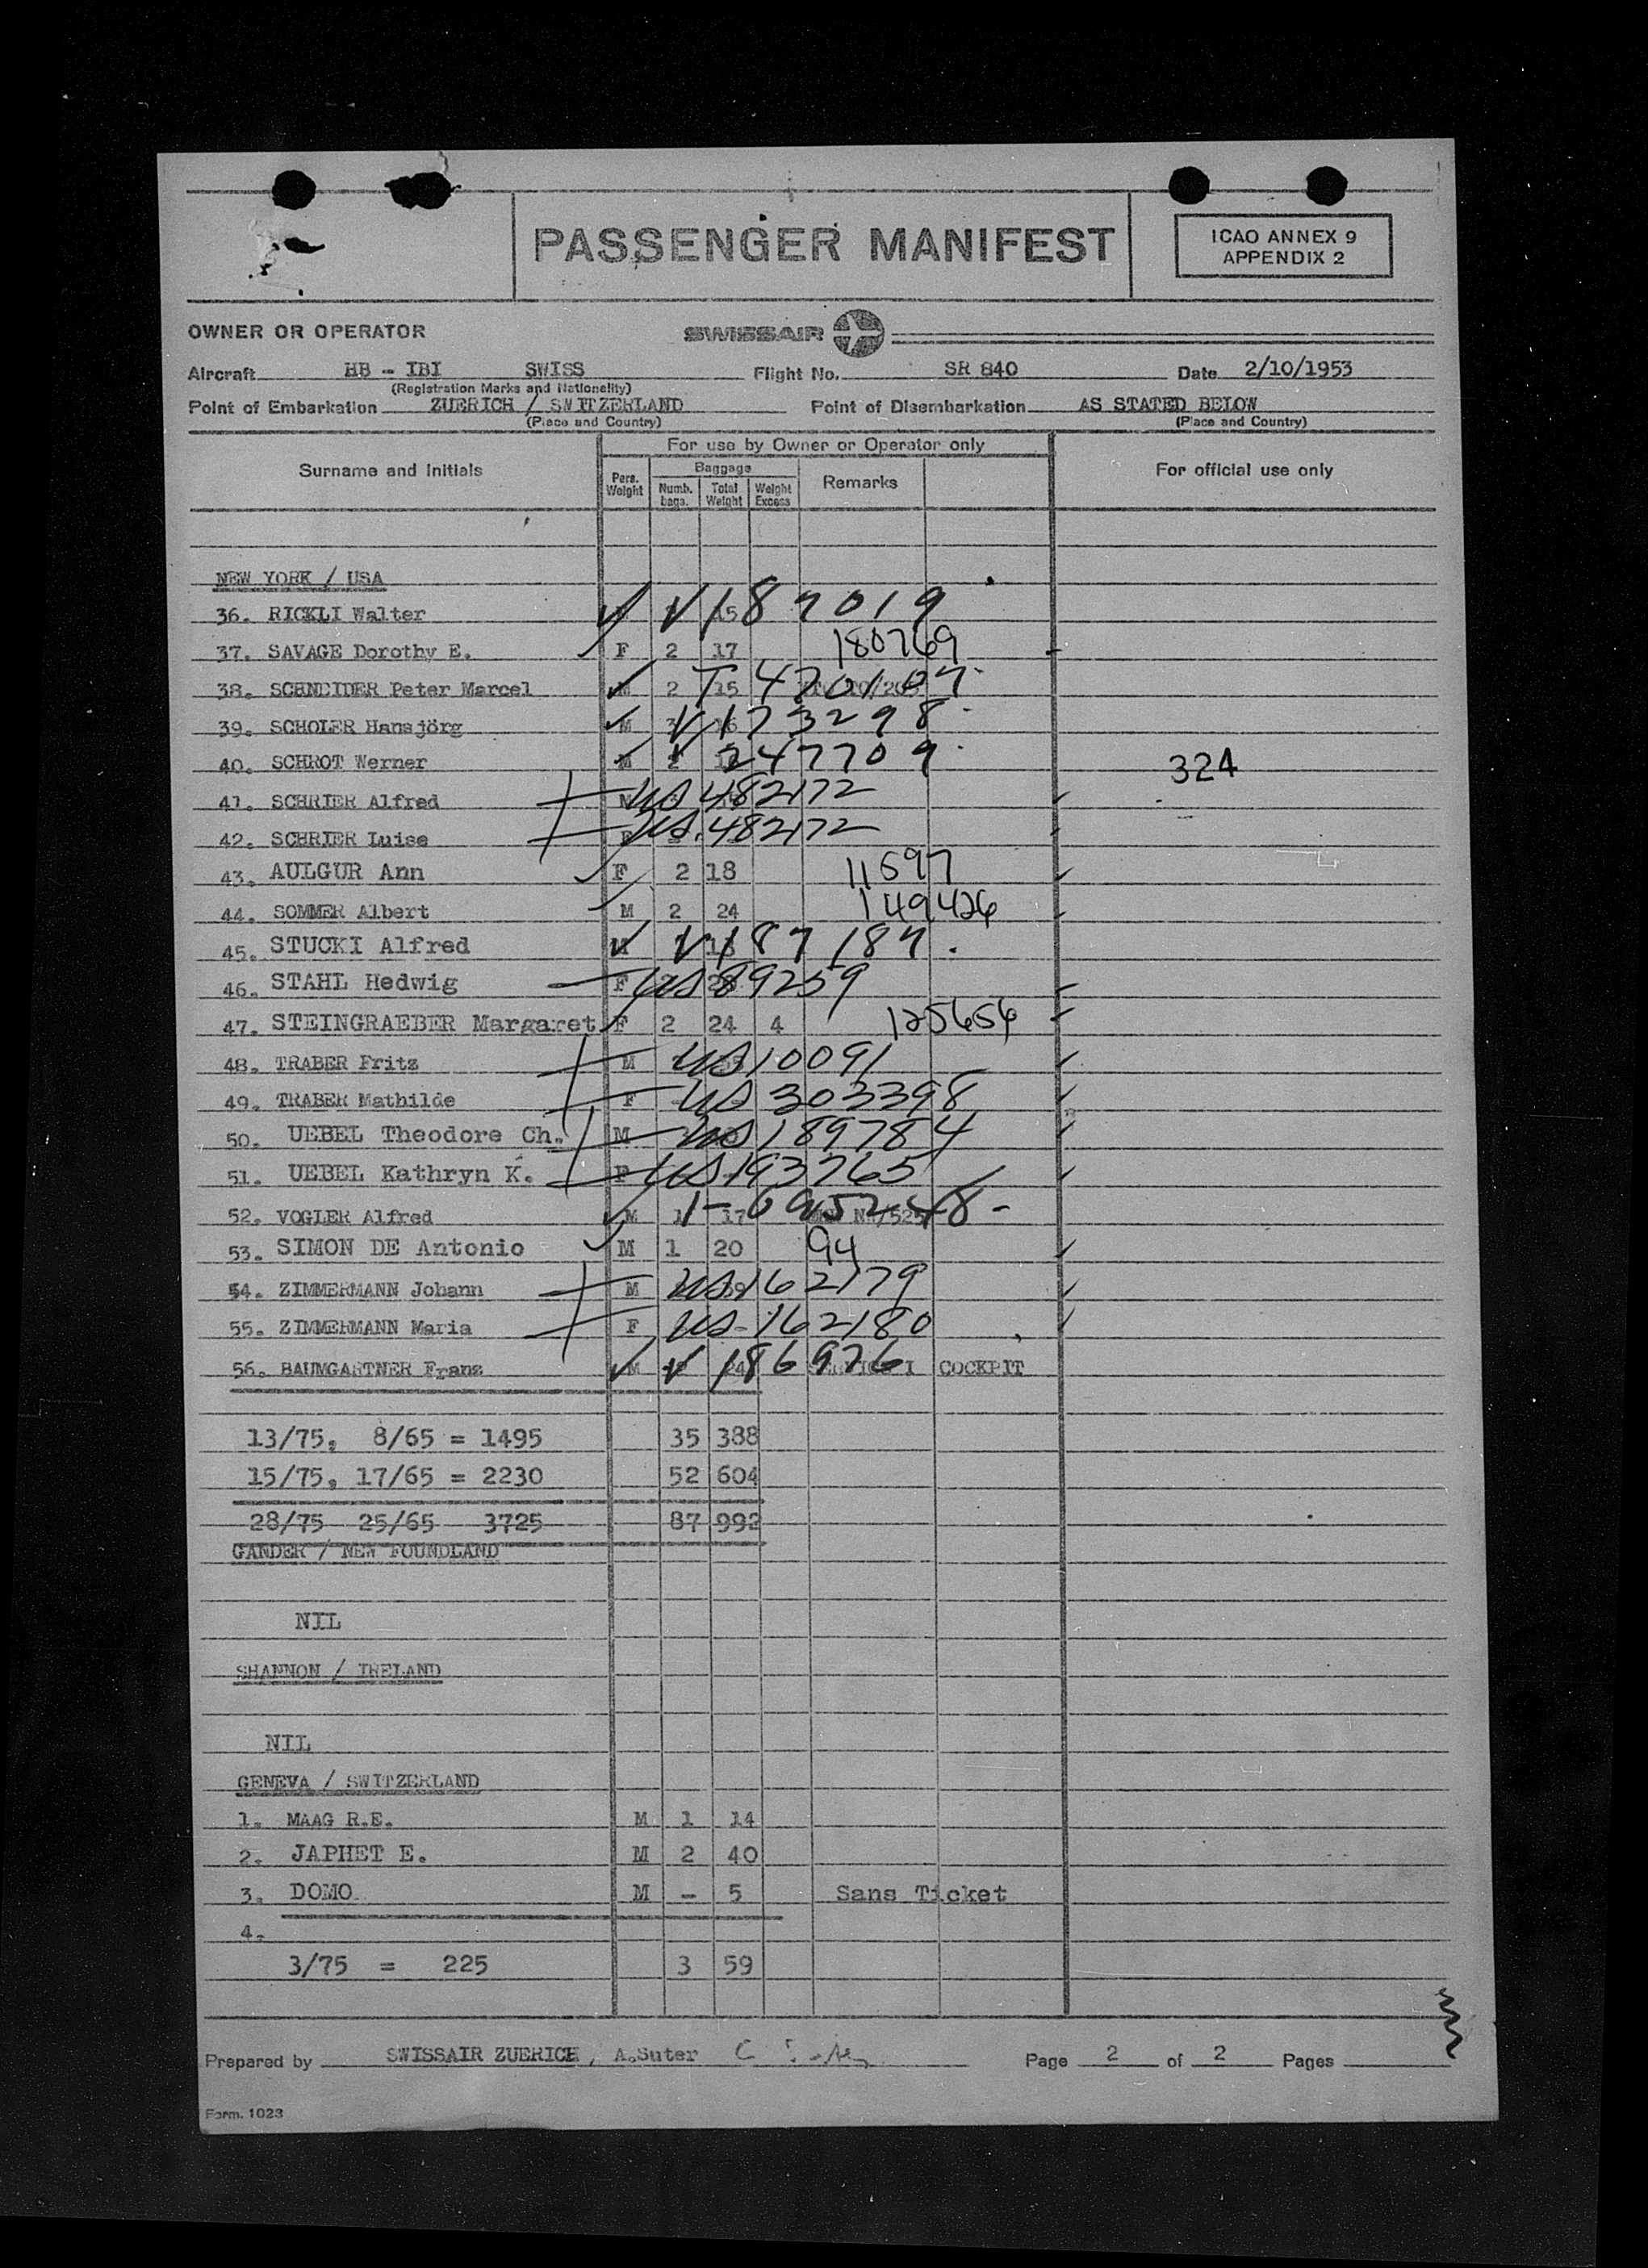 PASSENGER MANIFEST
ICAO ANNEX 9
APPENDIX 2
OWNER OR OPERATOR SWISSAIR
Aircraft HB - IBI SWISS Flight No. SR 840 Date 2/10/1953
(Registration Marks and Nationality)
Point of Embarkation ZUERICH / SWITZERLAND Point of Disembarkation AS STATED BELOW
(Place and Country) (Place and Country)
For use by Owner or Operator only
Surname and Initials Pers. Weight Baggage Numb. bags. Total Weight Weight Excess Remarks For official use only
NEW YORK / USA
36. RICKLI Walter V 187019
37. SAVAGE Dorothy E. F 2 17 180769
38. SCHNEIDER Peter Marcel M 2 15 T
39. SCHOLER Hansjörg M 3 V 173298
40. SCHROT Werner M 2 V 247709 324
41. SCHRIER Alfred M US 482172
42. SCHRIER Luise F US. 482172
43. AULGUR Ann F 2 18 11597
44. SOMMER Albert M 2 24 149426
45. STUCKI Alfred M V 187187
46. STAHL Hedwig F US 89259
47. STEINGRAEBER Margaret F 2 24 4 125656
48. TRABER Fritz M US 10091
49. TRABER Mathilde F US 303398
50. UEBEL Theodore Ch. M US 189784
51. UEBEL Kathryn K. F US 193765
52. VOGLER Alfred M 1 17
53. SIMON DE Antonio M 1 20 94
54. ZIMMERMANN Johann M US 162179
55. ZIMMERMANN Maria F US-162180
56. BAUMGARTNER Franz M V 186976 COCKPIT
13/75, 8/65 = 1495 35 388
15/75, 17/65 = 2230 52 604
28/75 25/65 3725 87 992
GANDER / NEW FOUNDLAND
NIL
SHANNON / IRELAND
NIL
GENEVA / SWITZERLAND
1. MAAG R.E. M 1 14
2. JAPHET E. M 2 40
3. DOMO M - 5 Sans Ticket
4.
3/75 = 225 3 59
Prepared by SWISSAIR ZUERICH, A.Suter Page 2 of 2 Pages
Form. 1023